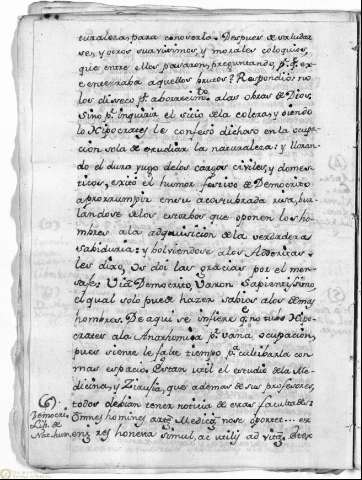 turaleza, para conocerla. Despues de saludar
se, y otros suavissimos, y morales coloquios,
que entre ellos pasaron, preguntando, pr. q. ex
entenava aquellos brutos? Respondio: no
los diseco pr. aborrecimto. a las obras de Dios,
sino pr. inquirir el sitio de la colera; y oiendo
lo Hipocrates le confesó dichoso en la ocupa
cion sola de estudiar la naturaleza: y lloran
do el duro yugo de los cargos civiles, y domes
ticos, exitó el humor festivo de Democrito
a prorrumpir en su acostumbrada risa, bur
landose de los estorbos que oponen los hom
bres a la adquisicion de la verdadera
sabiduria: y bolviendose a los Abderitas
les dixo, Os doi las gracias por el men
saje: Vi a Democrito, Varon Sapientissimo,
el qual solo puede hazer sabios a los demas
hombres. De aqui se infiere q. no tubo Hipo
crates a la Anathomia pr. vana ocupacion,
pues siente le falte tiempo pa. cultibarla con
mas espacio. Es tan util el estudio de la Me
dicina, y Zirujia, que ademas de sus profesores,
todos debian tener noticia de estas facultades:
Omnes homines artem Medicam nosse oportet... ex
eniz res honesta simul, ac utilis ad vitam
(6)
Democri.
Lib. de
Nat. hum.